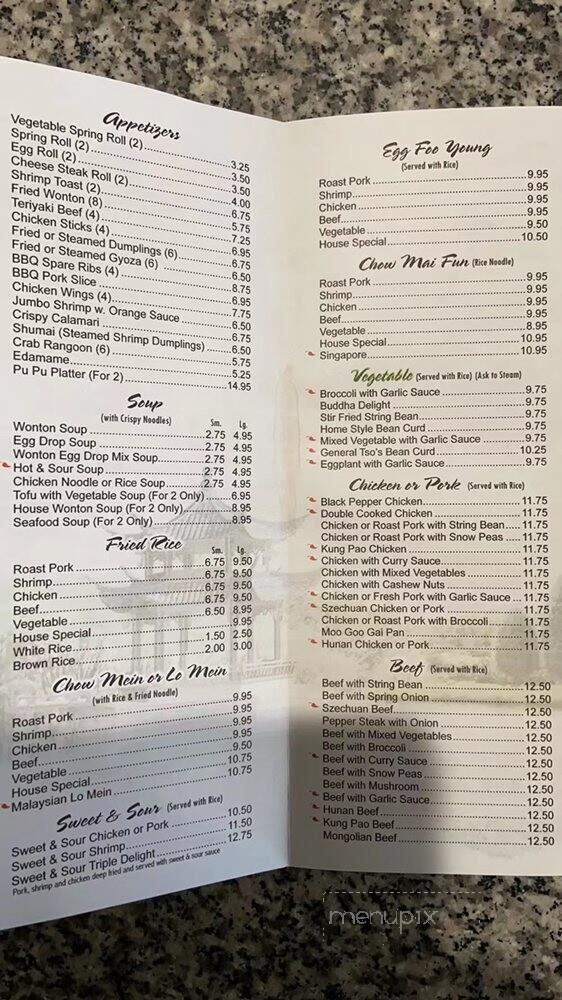 Appetizers
Vegetable Spring Roll (2) 3.25
Spring Roll (2) 3.50
Egg Roll (2) 3.50
Cheese Steak Roll (2) 4.00
Shrimp Toast (2) 6.75
Fried Wonton (8) 5.75
Teriyaki Beef (4) 7.25
Chicken Sticks (4) 6.95
Fried or Steamed Dumplings (6) 6.75
Fried or Steamed Gyoza (6) 6.50
BBQ Spare Ribs (4) 8.75
BBQ Pork Slice 6.95
Chicken Wings (4) 7.75
Jumbo Shrimp w. Orange Sauce 6.50
Crispy Calamari 6.75
Shumai (Steamed Shrimp Dumplings) 6.50
Crab Rangoon (6) 5.75
Edamame 5.25
Pu Pu Platter (For 2) 14.95
Soup
(with Crispy Noodles) Sm. Lg.
Wonton Soup 2.75 4.95
Egg Drop Soup 2.75 4.95
Wonton Egg Drop Mix Soup 2.75 4.95
Hot & Sour Soup 2.75 4.95
Chicken Noodle or Rice Soup 2.75 4.95
Tofu with Vegetable Soup (For 2 Only) 6.95
House Wonton Soup (For 2 Only) 8.95
Seafood Soup (For 2 Only) 8.95
Fried Rice Sm. Lg.
Roast Pork 6.75 9.50
Shrimp 6.75 9.50
Chicken 6.75 9.50
Beef 6.75 9.50
Vegetable 6.50 8.95
House Special 9.95
White Rice 1.50 2.50
Brown Rice 2.00 3.00
Chow Mein or Lo Mein
(with Rice & Fried Noodle)
Roast Pork 9.95
Shrimp 9.95
Chicken 9.95
Beef 9.95
Vegetable 9.50
House Special 10.75
Malaysian Lo Mein 10.75
Sweet & Sour (Served with Rice)
Sweet & Sour Chicken or Pork 10.50
Sweet & Sour Shrimp 11.50
Sweet & Sour Triple Delight 12.75
Pork, shrimp and chicken deep fried and served with sweet & sour sauce
Egg Foo Young
(Served with Rice)
Roast Pork 9.95
Shrimp 9.95
Chicken 9.95
Beef 9.95
Vegetable 9.50
House Special 10.50
Chow Mai Fun (Rice Noodle)
Roast Pork 9.95
Shrimp 9.95
Chicken 9.95
Beef 9.95
Vegetable 8.95
House Special 10.95
Singapore 10.95
Vegetable (Served with Rice) (Ask to Steam)
Broccoli with Garlic Sauce 9.75
Buddha Delight 9.75
Stir Fried String Bean 9.75
Home Style Bean Curd 9.75
Mixed Vegetable with Garlic Sauce 9.75
General Tso's Bean Curd 10.25
Eggplant with Garlic Sauce 9.75
Chicken or Pork (Served with Rice)
Black Pepper Chicken 11.75
Double Cooked Chicken 11.75
Chicken or Roast Pork with String Bean 11.75
Chicken or Roast Pork with Snow Peas 11.75
Kung Pao Chicken 11.75
Chicken with Curry Sauce 11.75
Chicken with Mixed Vegetables 11.75
Chicken with Cashew Nuts 11.75
Chicken or Fresh Pork with Garlic Sauce 11.75
Szechuan Chicken or Pork 11.75
Chicken or Roast Pork with Broccoli 11.75
Moo Goo Gai Pan 11.75
Hunan Chicken or Pork 11.75
Beef (Served with Rice)
Beef with String Bean 12.50
Beef with Spring Onion 12.50
Szechuan Beef 12.50
Pepper Steak with Onion 12.50
Beef with Mixed Vegetables 12.50
Beef with Broccoli 12.50
Beef with Curry Sauce 12.50
Beef with Snow Peas 12.50
Beef with Mushroom 12.50
Beef with Garlic Sauce 12.50
Hunan Beef 12.50
Kung Pao Beef 12.50
Mongolian Beef 12.50
menupix